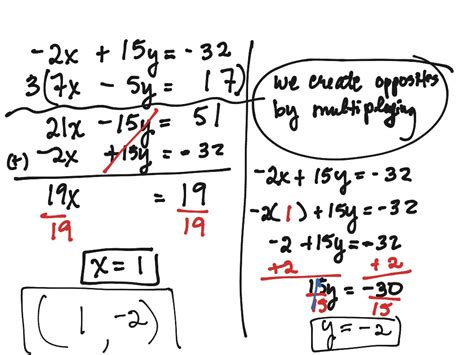 -2x + 15y = -32
3(7x - 5y = 17)
21x - 15y = 51
(+) -2x + 15y = -32
19x = 19
19 19
x = 1
( 1, -2)
We create opposites
by multiplying
-2x + 15y = -32
-2(1) + 15y = -32
-2 + 15y = -32
+2 +2
15y = -30
15 15
y = -2